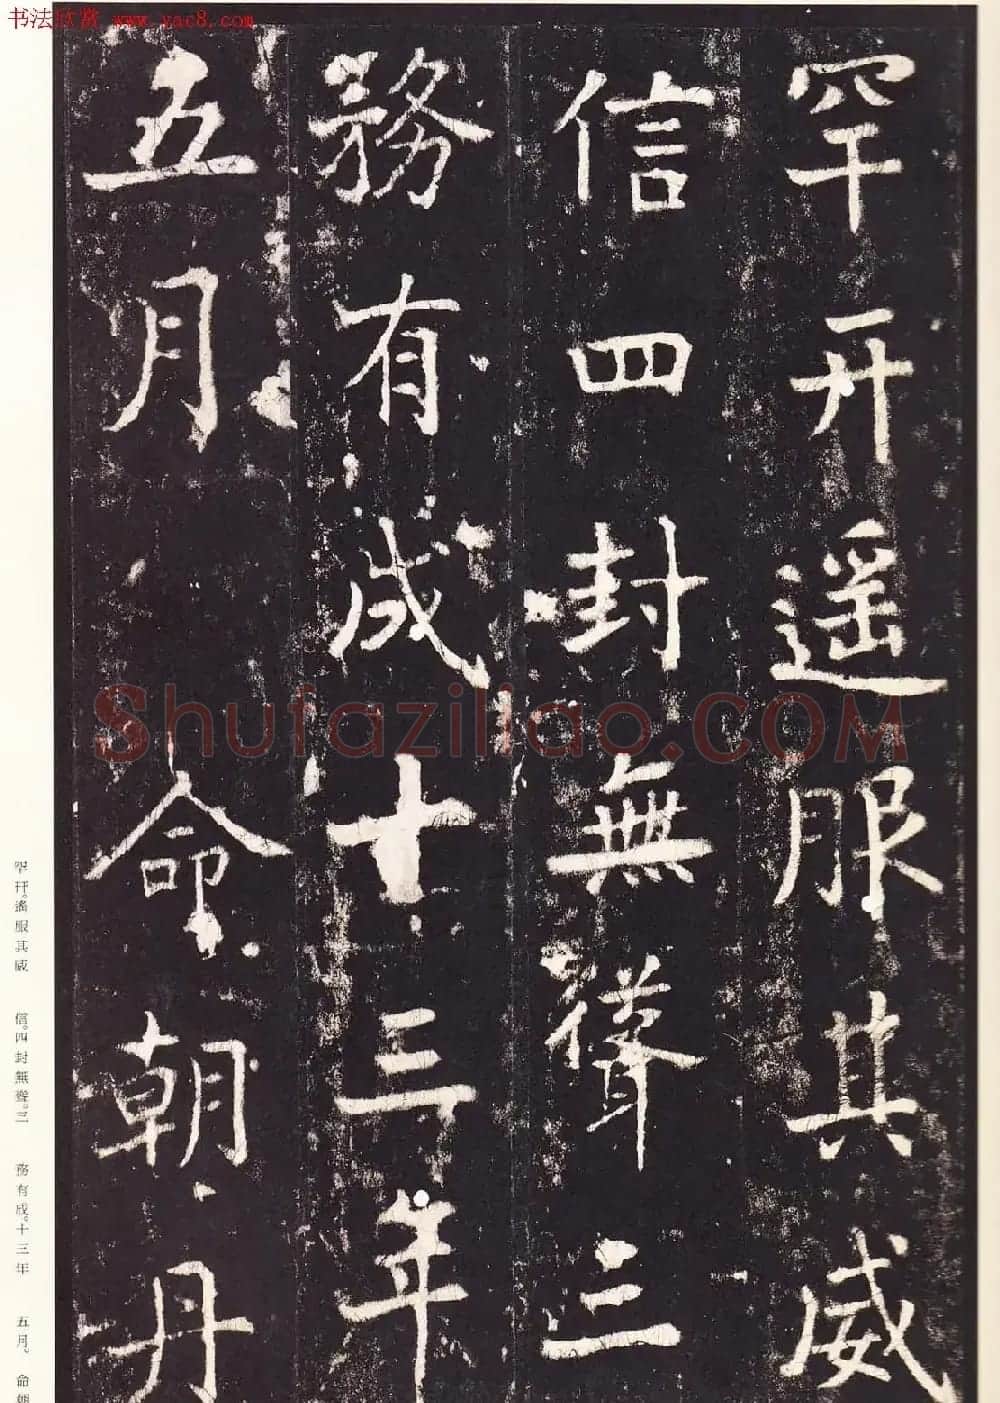 书法欣赏 www.yac8.com
罕开遥服其威
信四封無聳三
務有成十三年
五月 命朝丹
Shufaziliao.COM
罕幵。遙服其威 信。四封無聳。三 務有成。十三年 五月。命朝